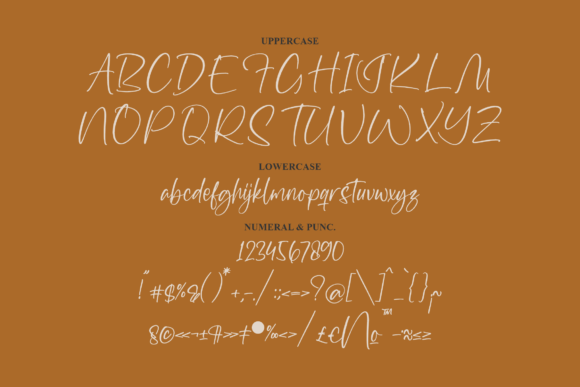 UPPERCASE
ABCDEFGHIJKLM
NOPQRSTUVWXYZ
LOWERCASE
abcdefghijklmnopqrstuvwxyz
NUMERAL & PUNC.
1234567890
!"#$%&()*+,-./:;<=>?@[\]^_`{}~
©««¬±¶»»‡●‰<>/£€№™-≤≥